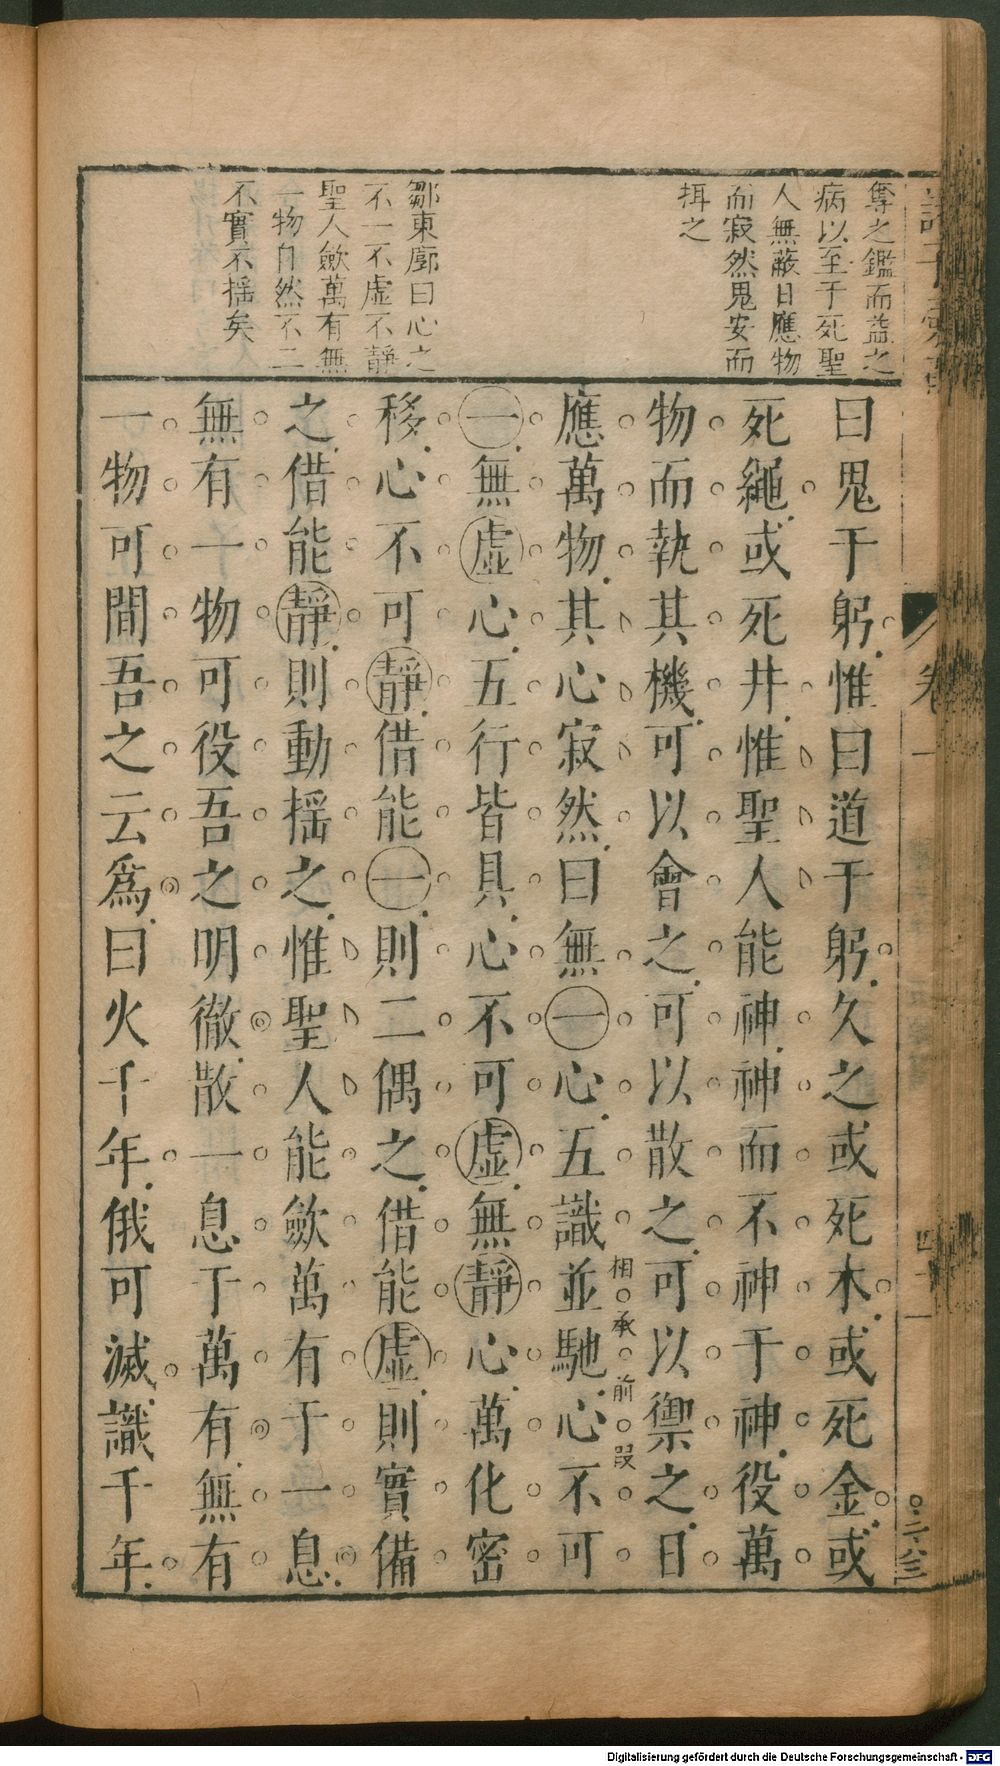 奪之鑑而益之
病以至于死聖
人無蔽日應物
而寂然鬼安而
揖之
鄒東廓曰心之
不一不虛不靜
聖人斂萬有無
一物自然不二
不實不揺矣
曰鬼于躬惟曰道于躬久之或死木或死金或
死繩或死井惟聖人能神神而不神于神役萬
物而執其機可以會之可以散之可以禦之日
應萬物其心寂然曰無一心五識並馳心不可
相承前段
一無虛心五行皆具心不可虛無靜心萬化密
移心不可靜借能一則二偶之借能虛則實備
之借能靜則動揺之惟聖人能斂萬有于一息
無有一物可役吾之明徹散一息于萬有無有
一物可間吾之云爲曰火千年俄可滅識千年
卷一
四
二八三
Digitalisierung gefördert durch die Deutsche Forschungsgemeinschaft - DFG